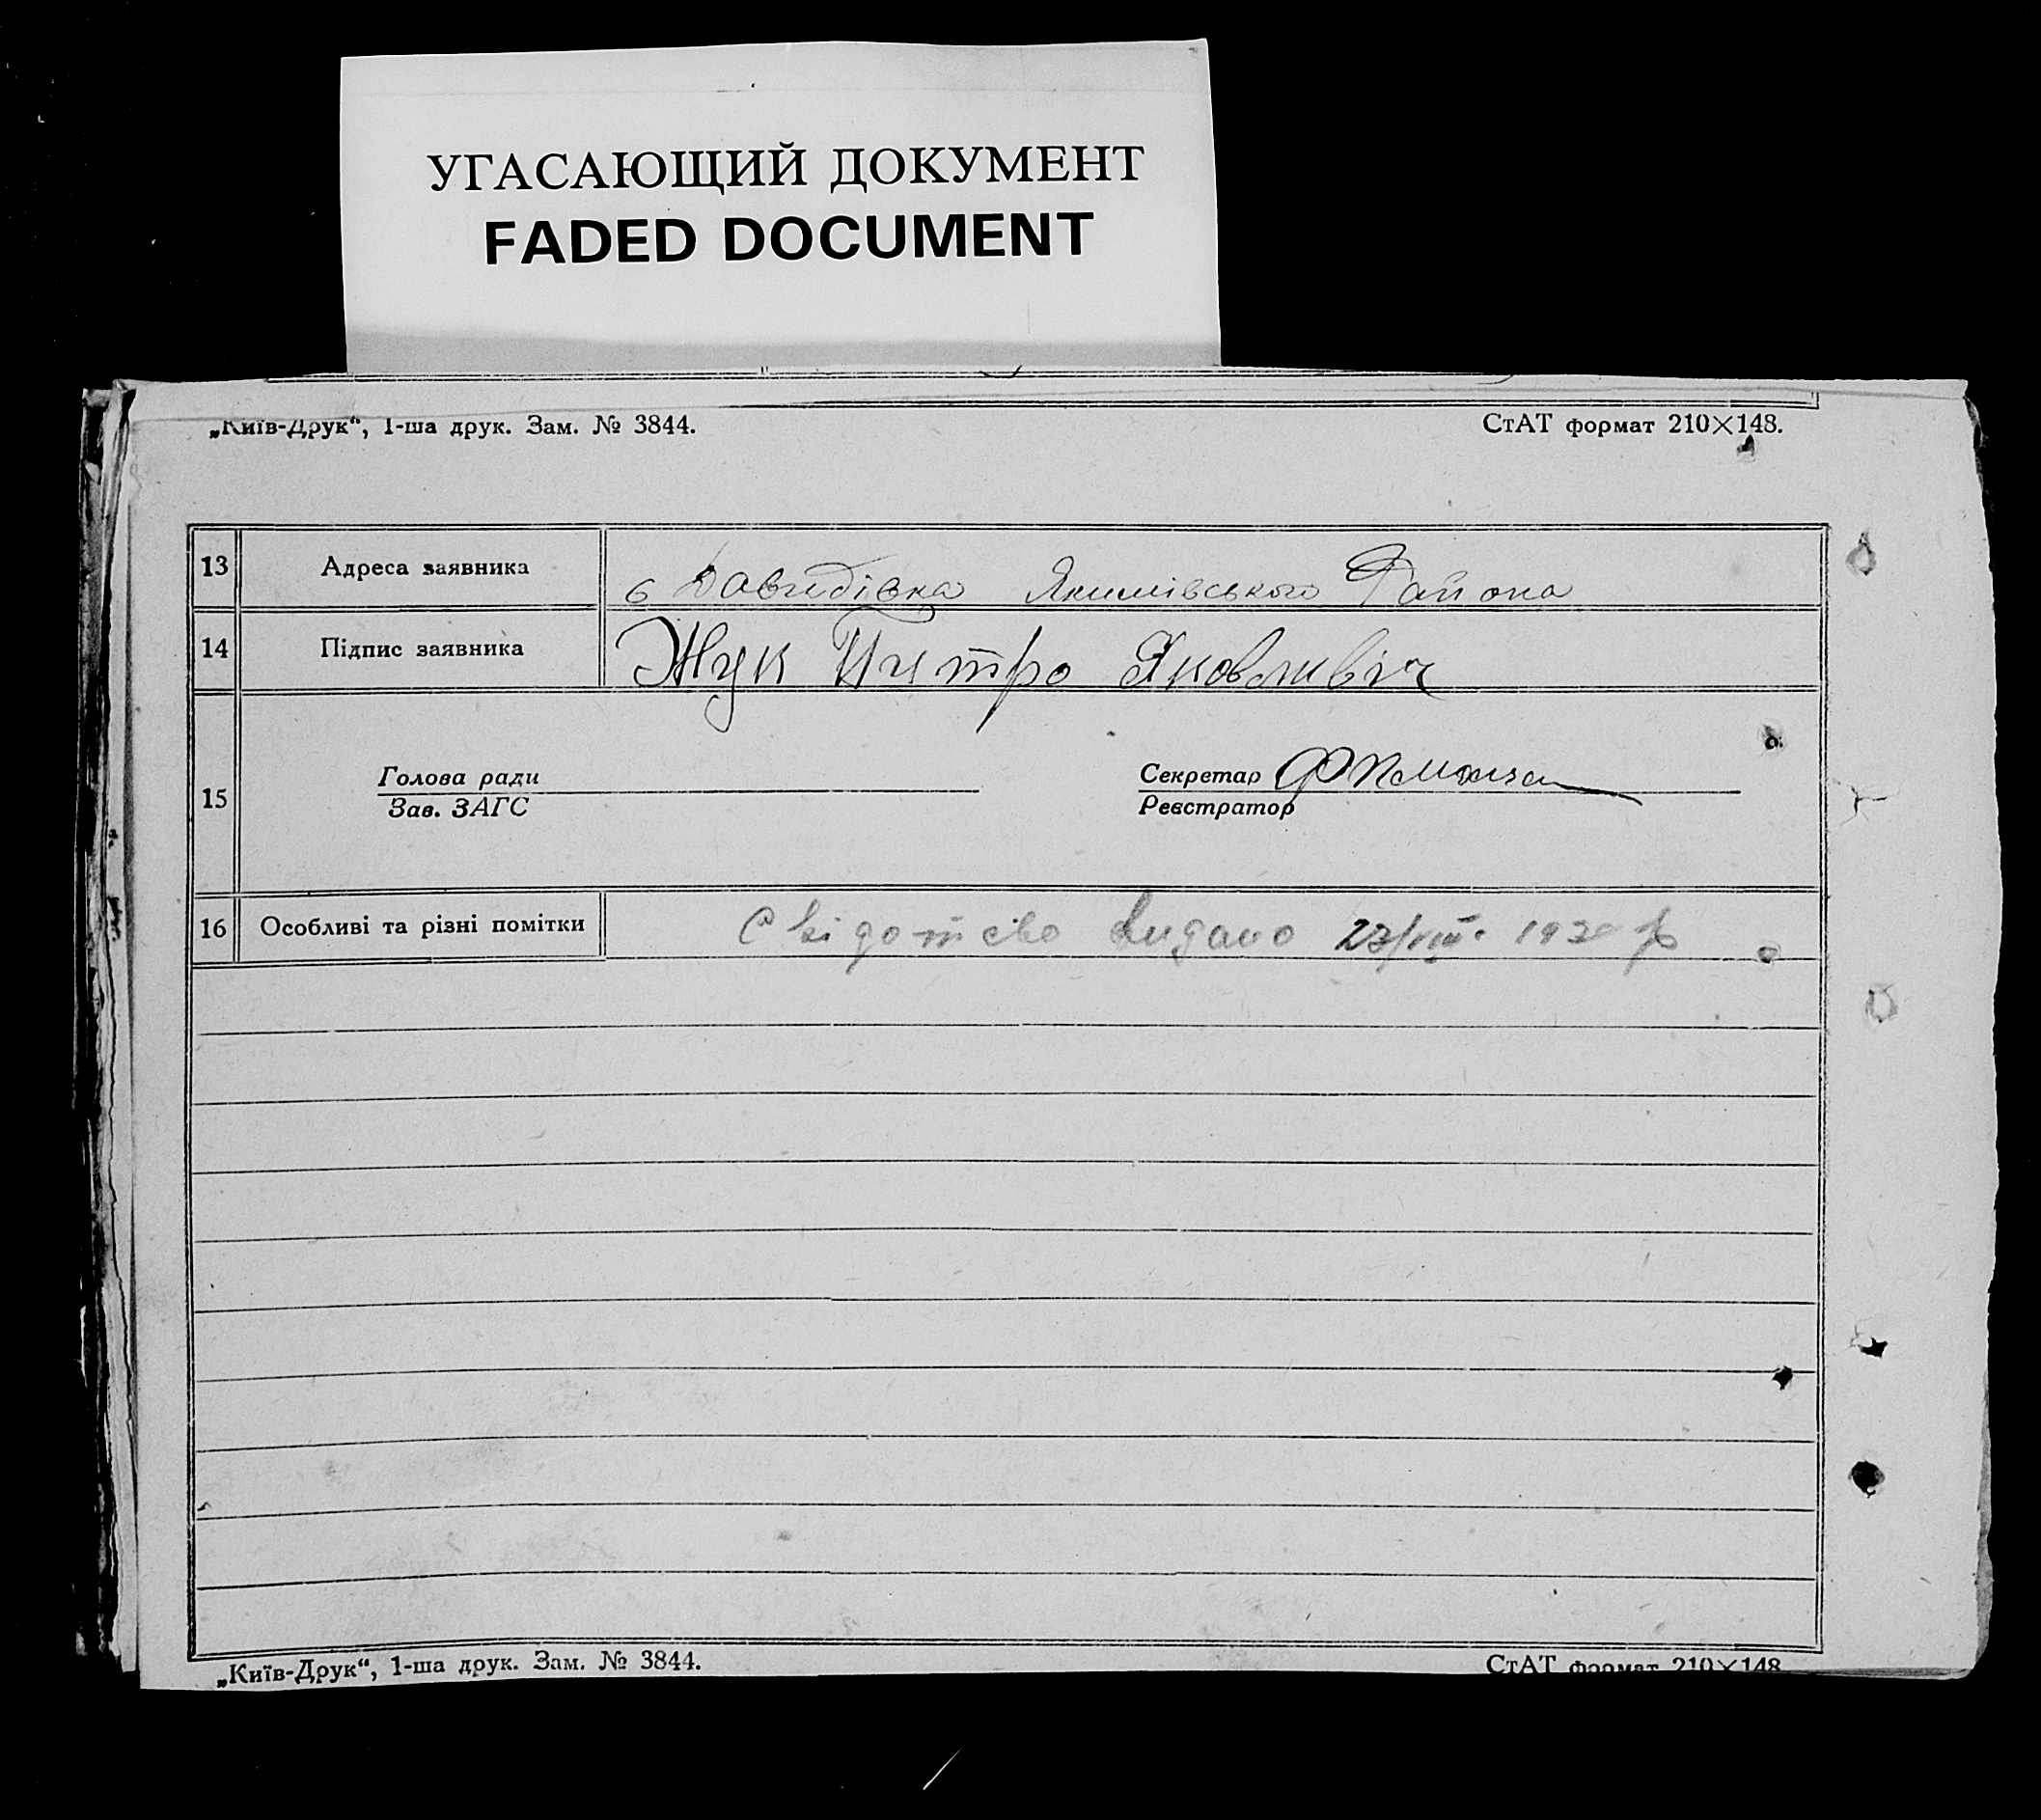 УГАСАЮЩИЙ ДОКУМЕНТ
FADED DOCUMENT
„Київ-Друк“, 1-ша друк. Зам. № 3844.
СтАТ формат 210×148.
13 Адреса заявника с Давидівка Якимівського Района
14 Підпис заявника Жук Питро Яковливіч
15
Голова ради
Зав. ЗАГС
Секретар
Реєстратор
16 Особливі та різні помітки Свідотство видано 23/VIII 193 р
„Київ-Друк“, 1-ша друк. Зам. № 3844.
СтАТ формат 210×148